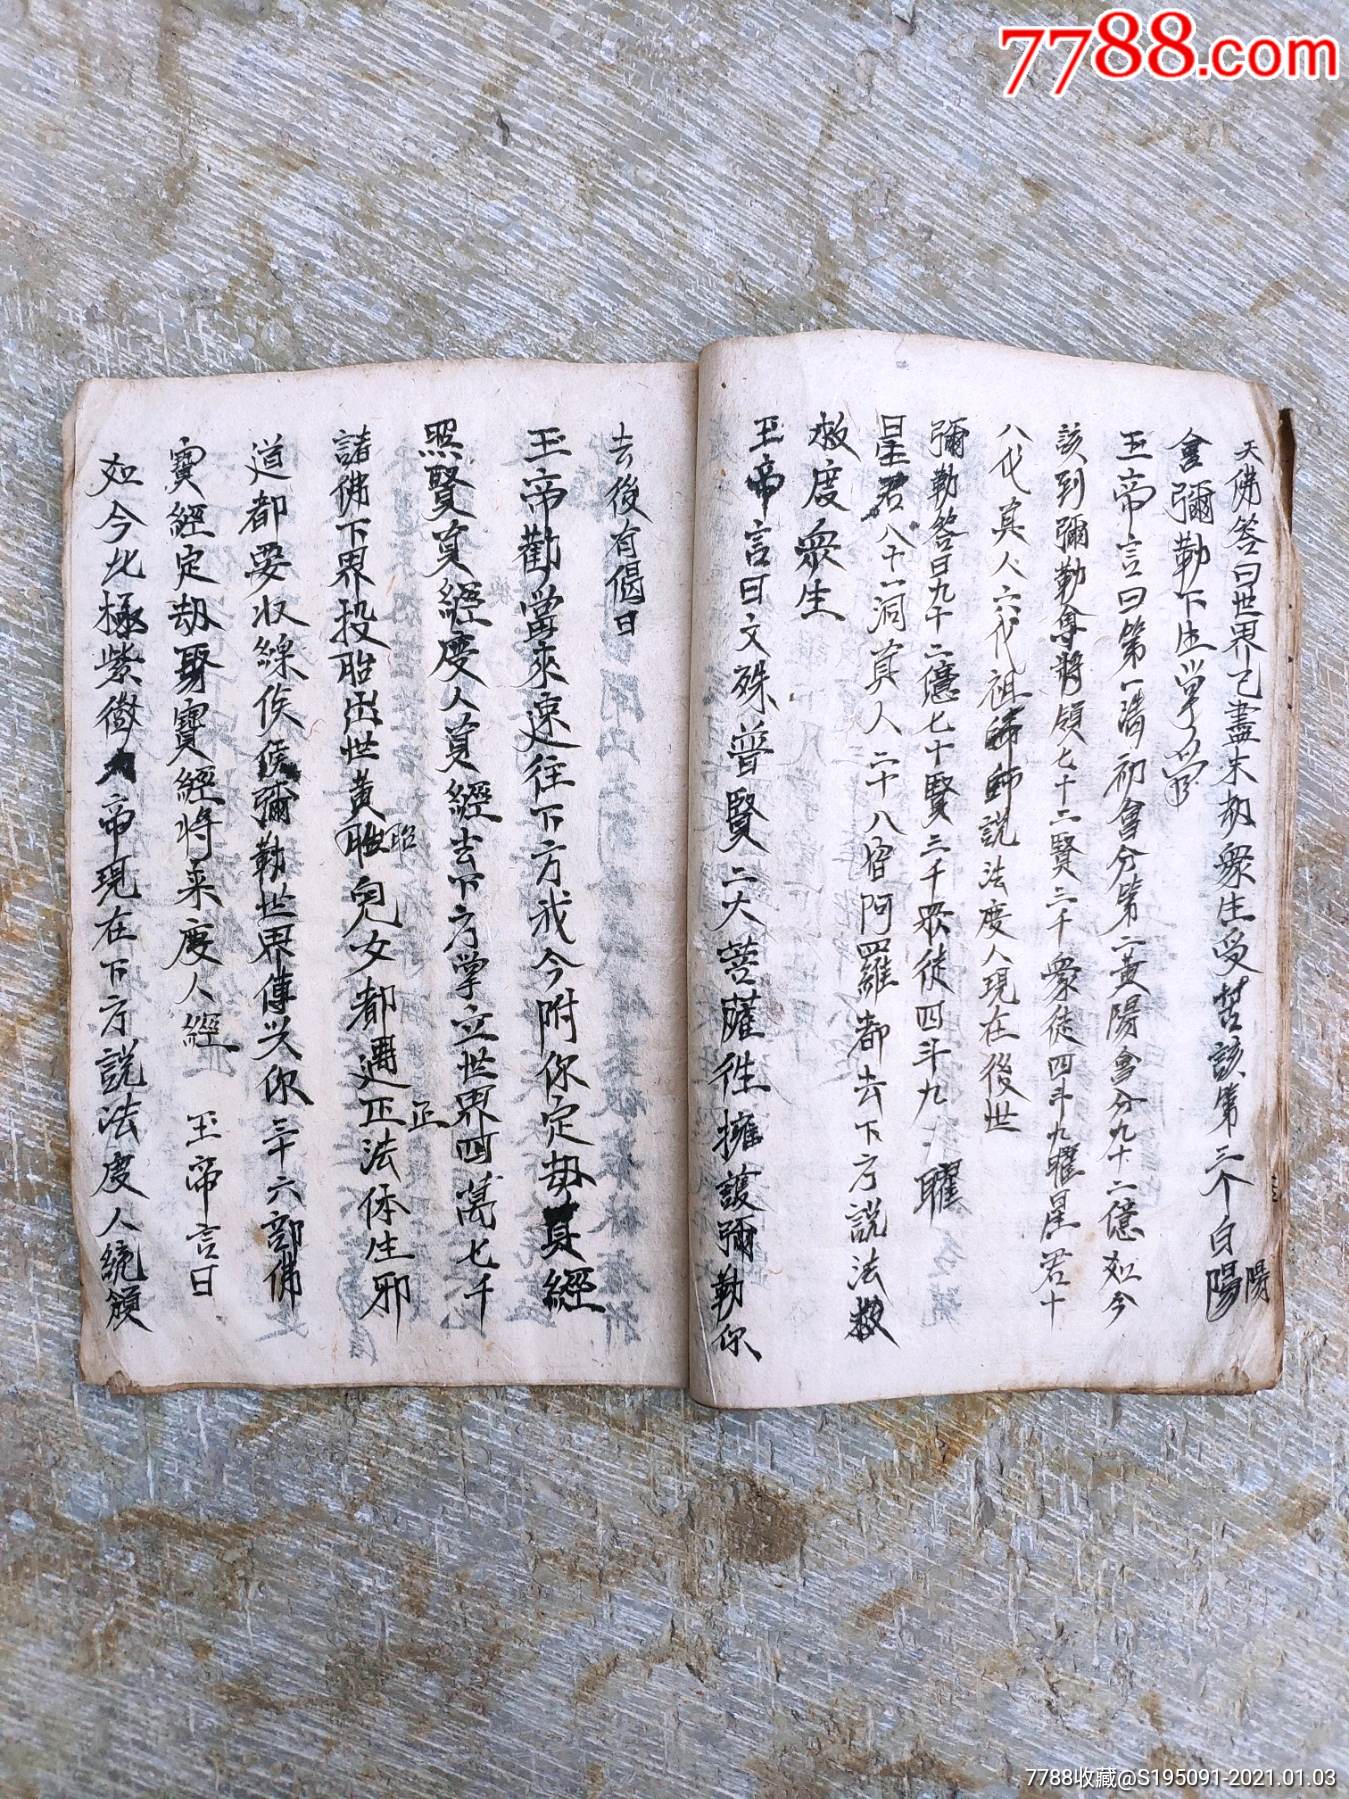 7788.com
天佛答曰世界已盡末劫眾生受苦該第三个白陽
陽
會彌勒下生掌管
玉帝言曰第一清初會分第二黃陽會分九十二億如今
該到彌勒尊將領七十二賢三千眾徒四斗九曜星君十
八代真人六代祖師說法度人現在後世
彌勒答曰九十二億七十賢三千眾徒四斗九曜
星君八十一洞真人二十八宿阿羅都去下方說法救
救度眾生
玉帝言曰文殊普賢二大菩薩徃擁護彌勒你
去後有偈曰
玉帝勸當來速往下方我今附你定劫真經
照賢真經度人真經去下方掌立世界四萬七千
諸佛下界投胎出世黃胎兒女都遇正法体生邪
胎
正
道都要收緣俟候彌勒世界傳與你三十六部佛
寶經定劫寶經將來度人經 玉帝言曰
如今北極紫微大帝現在下方說法度人統領
7788收藏@S195091-2021.01.03